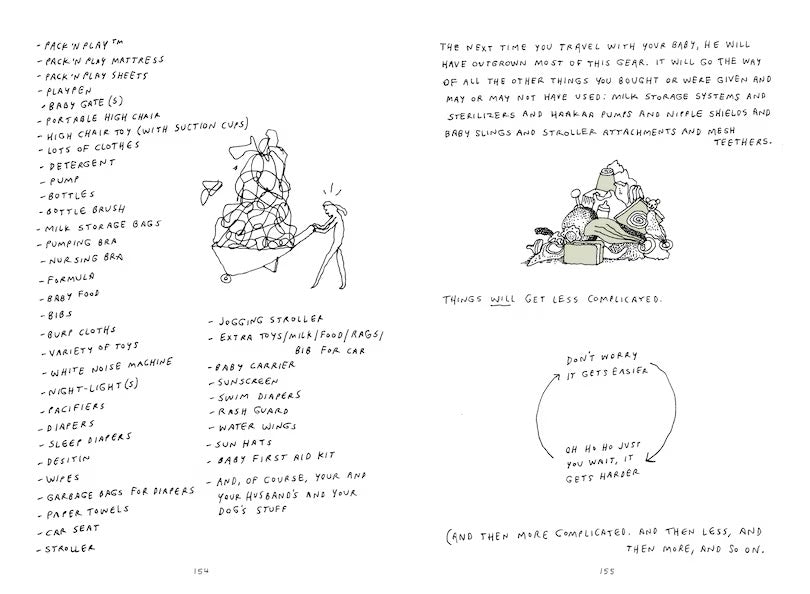 - PACK 'N PLAY™
- PACK 'N PLAY MATTRESS
- PACK 'N PLAY SHEETS
- PLAYPEN
- BABY GATE(S)
- PORTABLE HIGH CHAIR
- HIGH CHAIR TOY (WITH SUCTION CUPS)
- LOTS OF CLOTHES
- DETERGENT
- PUMP
- BOTTLES
- BOTTLE BRUSH
- MILK STORAGE BAGS
- PUMPING BRA
- NURSING BRA
- FORMULA
- BABY FOOD
- BIBS
- BURP CLOTHS
- VARIETY OF TOYS
- WHITE NOISE MACHINE
- NIGHT-LIGHT(S)
- PACIFIERS
- DIAPERS
- SLEEP DIAPERS
- DESITIN
- WIPES
- GARBAGE BAGS FOR DIAPERS
- PAPER TOWELS
- CAR SEAT
- STROLLER
- JOGGING STROLLER
- EXTRA TOYS/MILK/FOOD/RAGS/
BIB FOR CAR
- BABY CARRIER
- SUNSCREEN
- SWIM DIAPERS
- RASH GUARD
- WATER WINGS
- SUN HATS
- BABY FIRST AID KIT
- AND, OF COURSE, YOUR AND
YOUR HUSBAND'S AND YOUR
DOG'S STUFF
154
THE NEXT TIME YOU TRAVEL WITH YOUR BABY, HE WILL
HAVE OUTGROWN MOST OF THIS GEAR. IT WILL GO THE WAY
OF ALL THE OTHER THINGS YOU BOUGHT OR WERE GIVEN AND
MAY OR MAY NOT HAVE USED: MILK STORAGE SYSTEMS AND
STERILIZERS AND HAAKAA PUMPS AND NIPPLE SHIELDS AND
BABY SLINGS AND STROLLER ATTACHMENTS AND MESH
TEETHERS.
THINGS WILL GET LESS COMPLICATED.
DON'T WORRY
IT GETS EASIER
OH HO HO JUST
YOU WAIT, IT
GETS HARDER
(AND THEN MORE COMPLICATED. AND THEN LESS, AND
THEN MORE, AND SO ON.
155